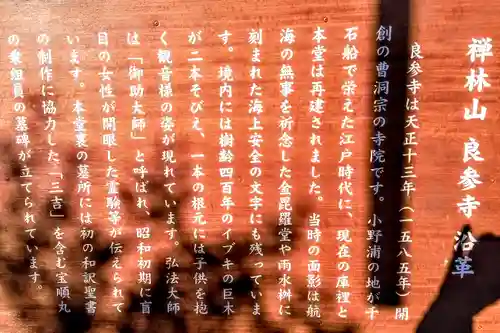 禅林山 良参寺 沿革
良参寺は天正十三年(一五八五年)開
創の曹洞宗の寺院です。小野浦の地が千
石船で栄えた江戸時代に、現在の庫裡と
本堂は再建されました。当時の面影は航
海の無事を祈念した金毘羅堂や雨水桝に
刻まれた海上安全の文字にも残っていま
す。境内には樹齢四百年のイブキの巨木
が二本そびえ、一本の根元には子供を抱
く観音様の姿が現れています。弘法大師
は「御助大師」と呼ばれ、昭和初期に盲
目の女性が開眼した霊験等が伝えられて
います。本堂裏の墓所には初の和訳聖書
の制作に協力した「三吉」を含む宝順丸
の乗組員の墓碑が立てられています。